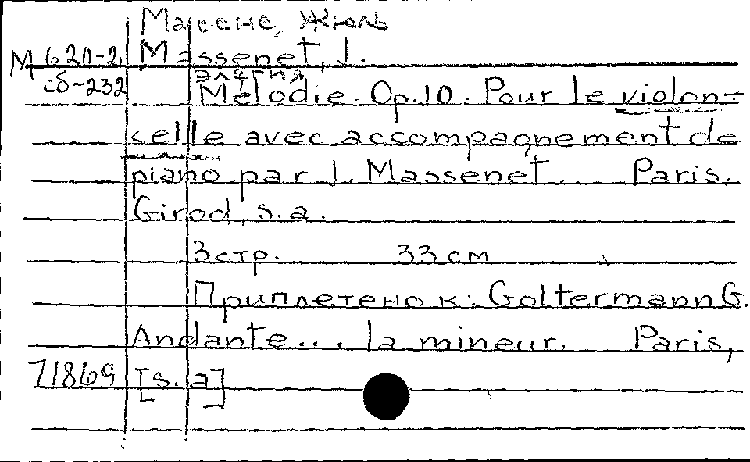 Массне, Жюль
М 620-2 Massenet, J.
сб-232 элегия
Mélodie. Op. 10. Pour le violon-
celle avec accompagnement de
piano par J. Massenet. Paris,
Girod, s. a.
3 стр. 33 см
Приплетено к: Goltermann G.
Andante... la mineur. Paris,
71869 [s. a]